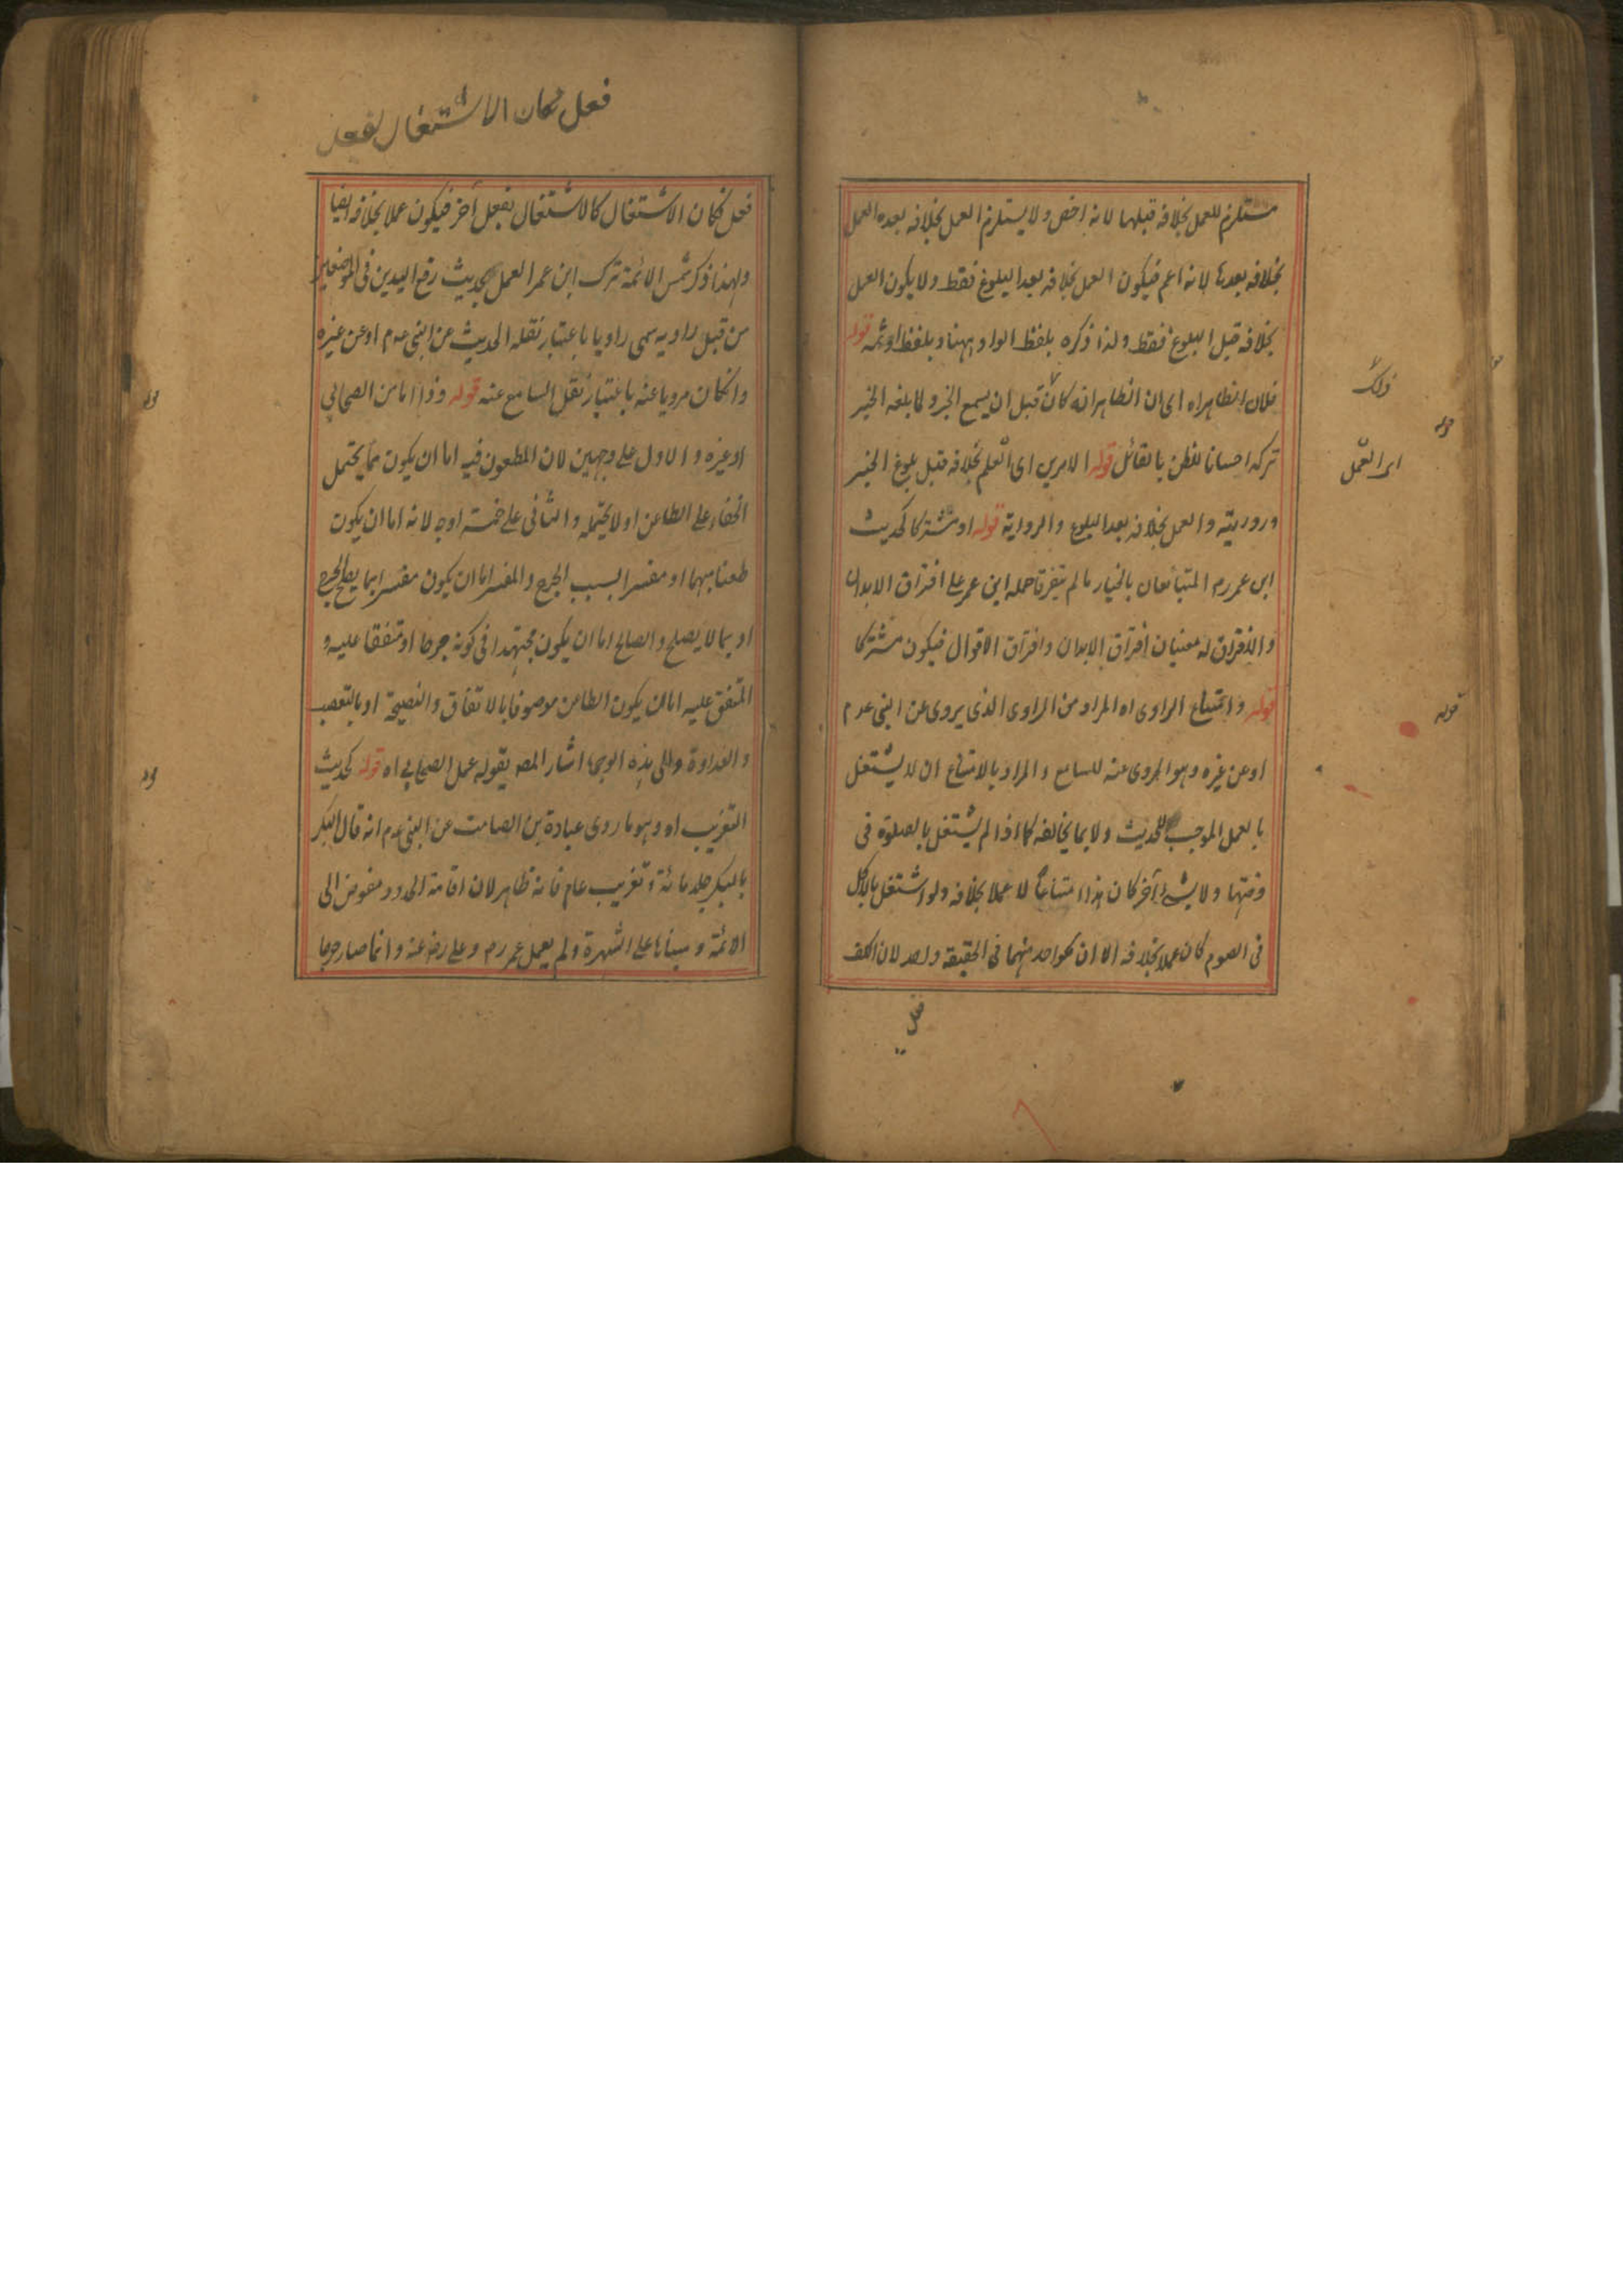 مستلزم للعمل بخلافه قبلهما لانه اخص ولا يستلزم العمل بخلافه بعده العمل
بخلافه بعدها لانه اعم فيكون العمل بخلافه بعد البلوغ فقط ولا يكون العمل
بخلافه قبل البلوغ فقط ولذا ذكره بلفظ الواو ههنا وبلفظ او ثمه قوله
فلان الظاهر اه اى ان الظاهر انه كان قبل ان يسمع الخبر ولما بلغه الخبر
تركه احسانا للظن بالقائل قوله الامرين اى العلم بخلافه قبل بلوغ الخبر
وروريته والعمل بخلافه بعد البلوغ والرواية قوله او مشتركا كحديث
ابن عمر رم المتبائعان بالخيار مالم يتفرقا حمله ابن عمر على افتراق الابدان
والافتراق له معنيان افتراق الابدان وافتراق الاقوال فيكون مشتركا
قوله وامتناع الراوى اه المراد من الراوى الذى يروى عن النبى عم
او عن غيره وهو المروى عنه للسامع والمراد بالامتناع ان لا يشتغل
بالعمل الموجب للحديث ولا بما يخالفه كما اذا لم يشتغل بالصلوة فى
وقتها ولا بشئ آخر كان هذا امتناعا لا عملا بخلافه ولو اشتغل بالاكل
فى الصوم كان عملا بخلافه الا ان كل واحد منهما فى الحقيقة واحد لان الكف
فعل
ذلك
اى العمل
قوله
قوله
فعل فكان الاشتغال بفعل
فعل فكان الاشتغال كالاشتغال بفعل آخر فيكون عملا بخلافه ايضا
ولهذا ذكر شمس الائمة ترك ابن عمر العمل بحديث رفع اليدين فى الموضعين
من قبل راويه سمى راويا باعتبار نقله الحديث عن النبى عم او عن غيره
وان كان مرويا عنه باعتبار نقل السامع عنه قوله وذا اما من الصحابى
او غيره والاول على وجهين لان المطعون فيه اما ان يكون مما يحتمل
الخفاء على الطاعن او لا يحتمله والثانى على خمسة اوجه لانه اما ان يكون
طعنا مبهما او مفسرا بسبب الجرح والمفسر اما ان يكون مفسرا بما يصلح للجرح
او بما لا يصلح والصالح اما ان يكون مجتهدا فى كونه جرحا او متفقا عليه و
المتفق عليه اما ان يكون الطاعن موصوفا بالاتفاق والنصيحة او بالتعصب
والعداوة والى هذه الوجوه اشار المصه بقوله عمل الصحابى اه قوله كحديث
التغريب اه وهو ما روى عبادة بن الصامت عن النبى عم انه قال البكر
بالبكر جلد مائة وتغريب عام فانه ظاهر لان اقامة الحدود مفوض الى
الائمة ومبناها على الشهرة ولم يعمل عمر رم وعلى رضه عنه وانما صار جرحا